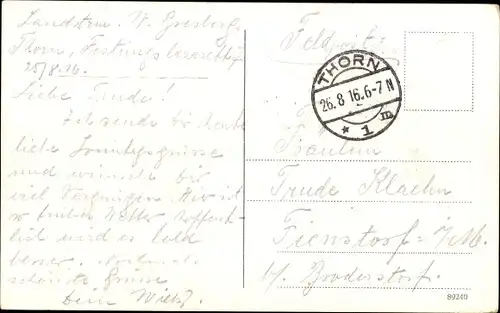 Landstrm. W.
Thorn, Festungslazarett
25/8.16.
Liebe Trude!
Ich sende dir heute
liebe Sonntagsgrüsse
und wünsche dir
viel Vergnügen. Hier ist
so
wird es bald
besser.
schönste Grüsse
dein Willy.
Feldpost
THORN
26.8 16.6-7 N
* 1 m
Fräulein
Trude Klaehn
Tienstorf i/M.
b/ Broderstorf.
89240